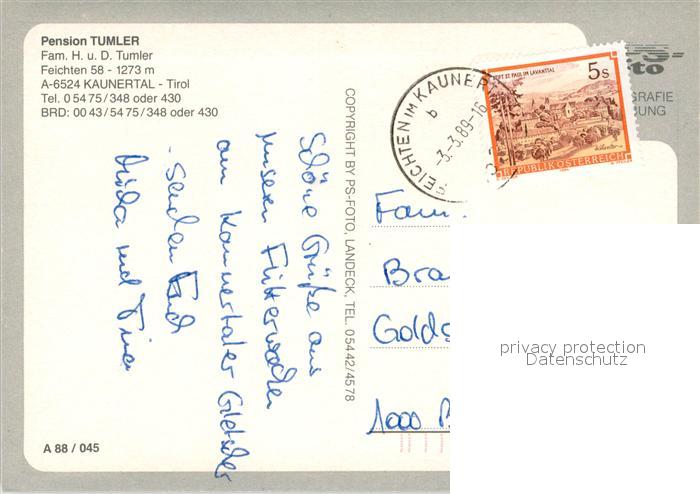 Pension TUMLER
Fam. H. u. D. Tumler
Feichten 58 - 1273 m
A-6524 KAUNERTAL - Tirol
Tel. 0 54 75 / 348 oder 430
BRD: 00 43 / 54 75 / 348 oder 430
Schöne Grüße aus
unseren Flitterwochen
am Kaunertaler Gletscher
- senden Euch
und
A 88 / 045
COPYRIGHT BY PS-FOTO, LANDECK, TEL. 05442/4578
FEICHTEN IM KAUNERT
b
-3.-3.89-16
STIFT ST. PAUL IM LAVANTTAL
5 s
REPUBLIK ÖSTERREICH
PS-
oto
GRAFIE
BUNG
Fam.
Bra
Golds
1000 B
privacy protection
Datenschutz